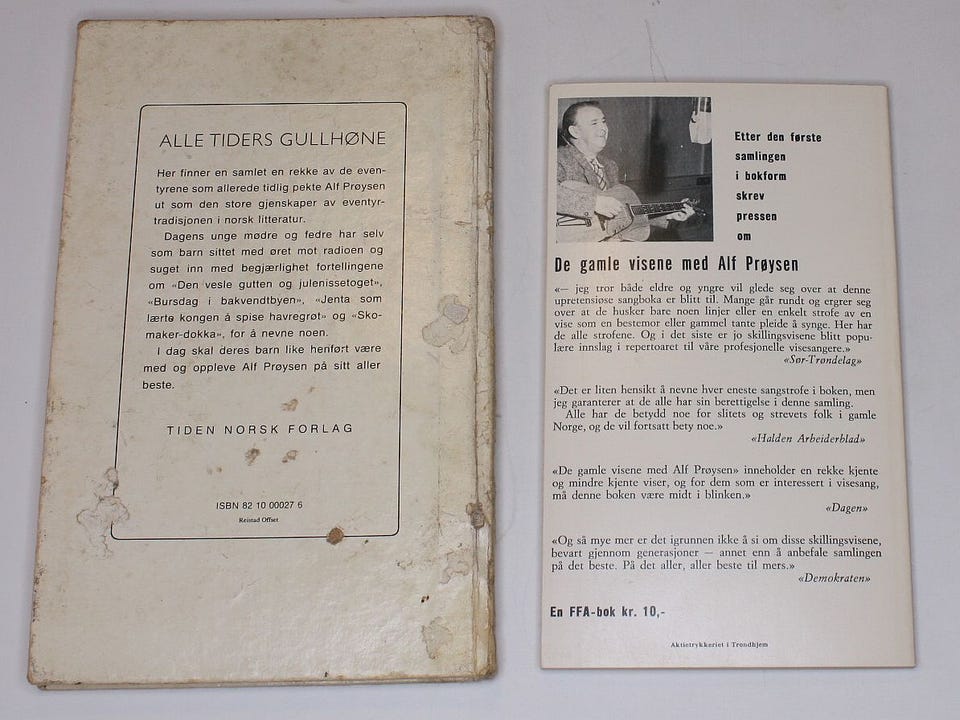 ALLE TIDERS GULLHØNE
Her finner en samlet en rekke av de even-
tyrene som allerede tidlig pekte Alf Prøysen
ut som den store gjenskaper av eventyr-
tradisjonen i norsk litteratur.
Dagens unge mødre og fedre har selv
som barn sittet med øret mot radioen og
suget inn med begjærlighet fortellingene
om «Den vesle gutten og julenissetoget»,
«Bursdag i bakvendtbyen», «Jenta som
lærte kongen å spise havregrøt» og «Sko-
maker-dokka», for å nevne noen.
I dag skal deres barn like henført være
med og oppleve Alf Prøysen på sitt aller
beste.
TIDEN NORSK FORLAG
ISBN 82 10 00027 6
Reistad Offset
Etter den første
samlingen
i bokform
skrev
pressen
om
De gamle visene med Alf Prøysen
«— jeg tror både eldre og yngre vil glede seg over at denne
upretensiøse sangboka er blitt til. Mange går rundt og ergrer seg
over at de husker bare noen linjer eller en enkelt strofe av en
vise som en bestemor eller gammel tante pleide å synge. Her har
de alle strofene. Og i det siste er jo skillingsvisene blitt popu-
lære innslag i repertoaret til våre profesjonelle visesangere.»
«Sør-Trøndelag»
«Det er liten hensikt å nevne hver eneste sangstrofe i boken, men
jeg garanterer at de alle har sin berettigelse i denne samling.
Alle har de betydd noe for slitets og strevets folk i gamle
Norge, og de vil fortsatt bety noe.»
«Halden Arbeiderblad»
«De gamle visene med Alf Prøysen» inneholder en rekke kjente
og mindre kjente viser, og for dem som er interessert i visesang,
må denne boken være midt i blinken.»
«Dagen»
«Og så mye mer er det igrunnen ikke å si om disse skillingsvisene,
bevart gjennom generasjoner — annet enn å anbefale samlingen
på det beste. På det aller, aller beste til mers.»
«Demokraten»
En FFA-bok kr. 10,-
Aktietrykkeriet i Trondhjem